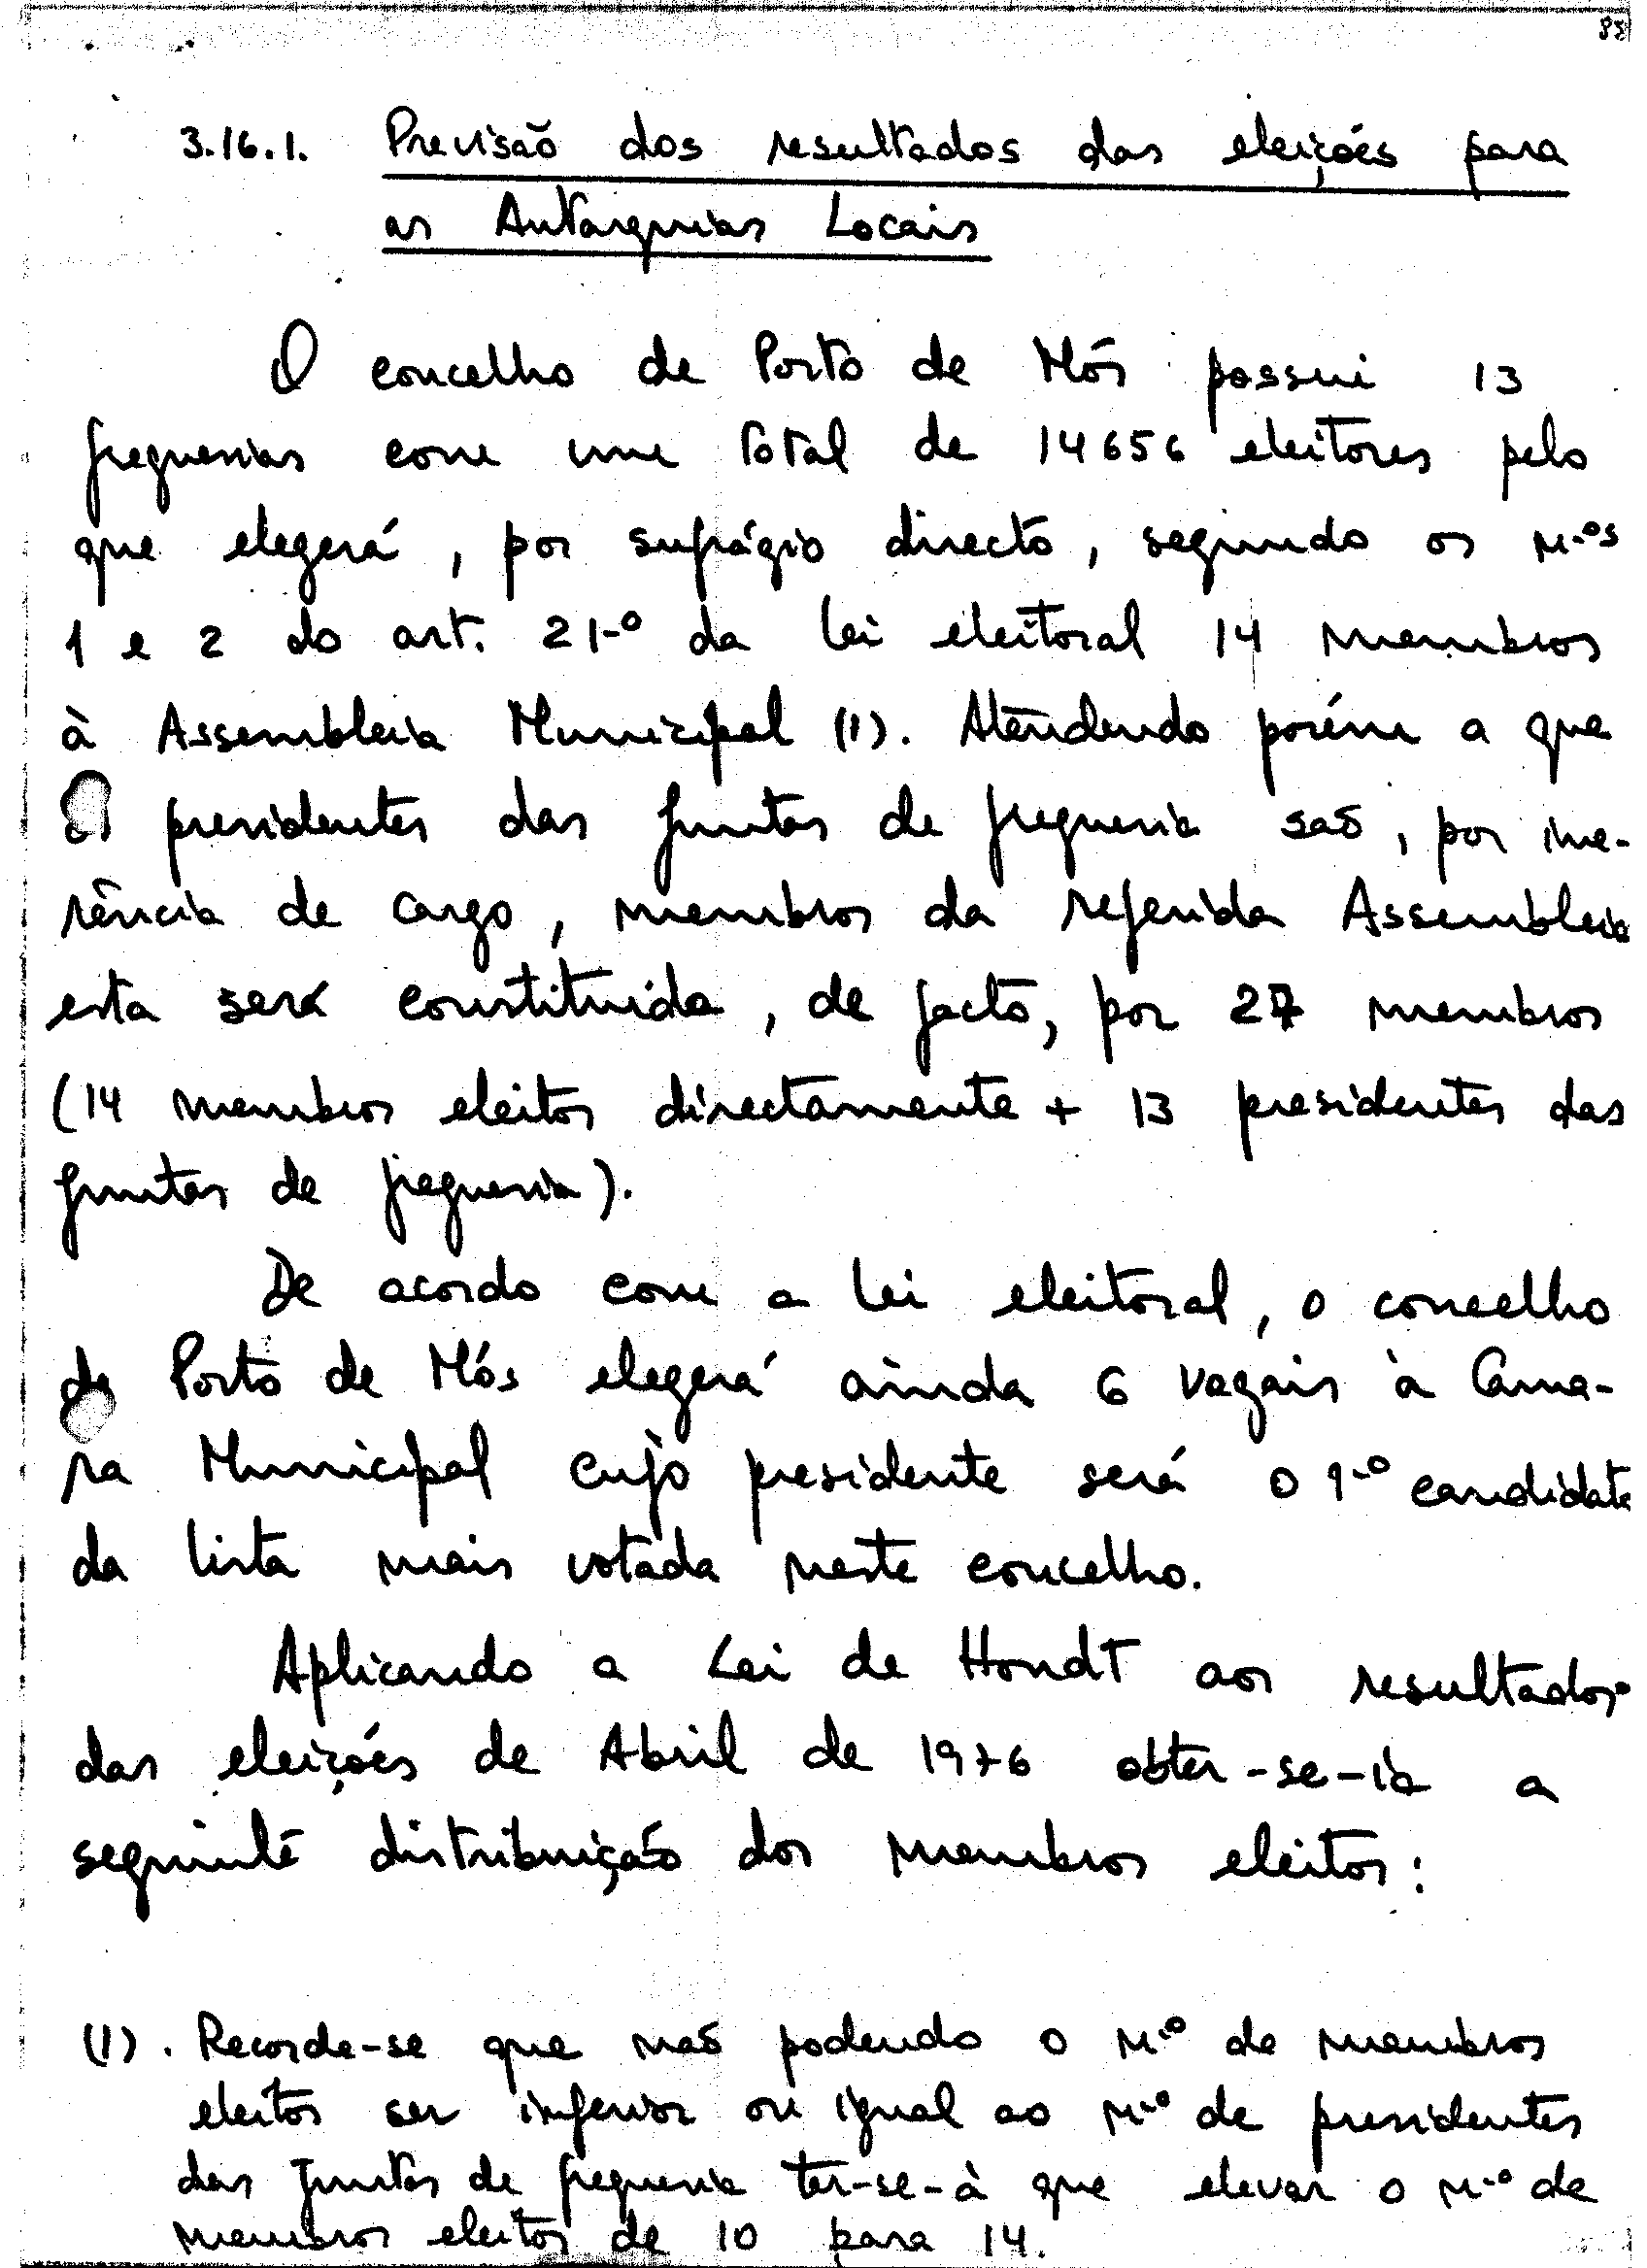 88
3.16.1. Previsão dos resultados das eleições para
as Autarquias Locais
O concelho de Porto de Mós possui 13
freguesias com um total de 14656 eleitores pelo
que elegerá, por sufrágio directo, segundo os n.os
1 e 2 do art. 21.º da lei eleitoral 14 membros
à Assembleia Municipal (1). Atendendo porém a que
os presidentes das juntas de freguesia são, por ine-
rência de cargo, membros da referida Assembleia
esta será constituída, de facto, por 27 membros
(14 membros eleitos directamente + 13 presidentes das
juntas de freguesia).
De acordo com a lei eleitoral, o concelho
de Porto de Mós elegerá ainda 6 vogais à Cama-
ra Municipal cujo presidente será o 1.º candidato
da lista mais votada neste concelho.
Aplicando a Lei de Hondt aos resultados
das eleições de Abril de 1976 obter-se-ia a
seguinte distribuição dos membros eleitos:
(1). Recorde-se que não podendo o n.º de membros
eleitos ser inferior ou igual ao n.º de presidentes
das Juntas de freguesia ter-se-à que elevar o n.º de
membros eleitos de 10 para 14.